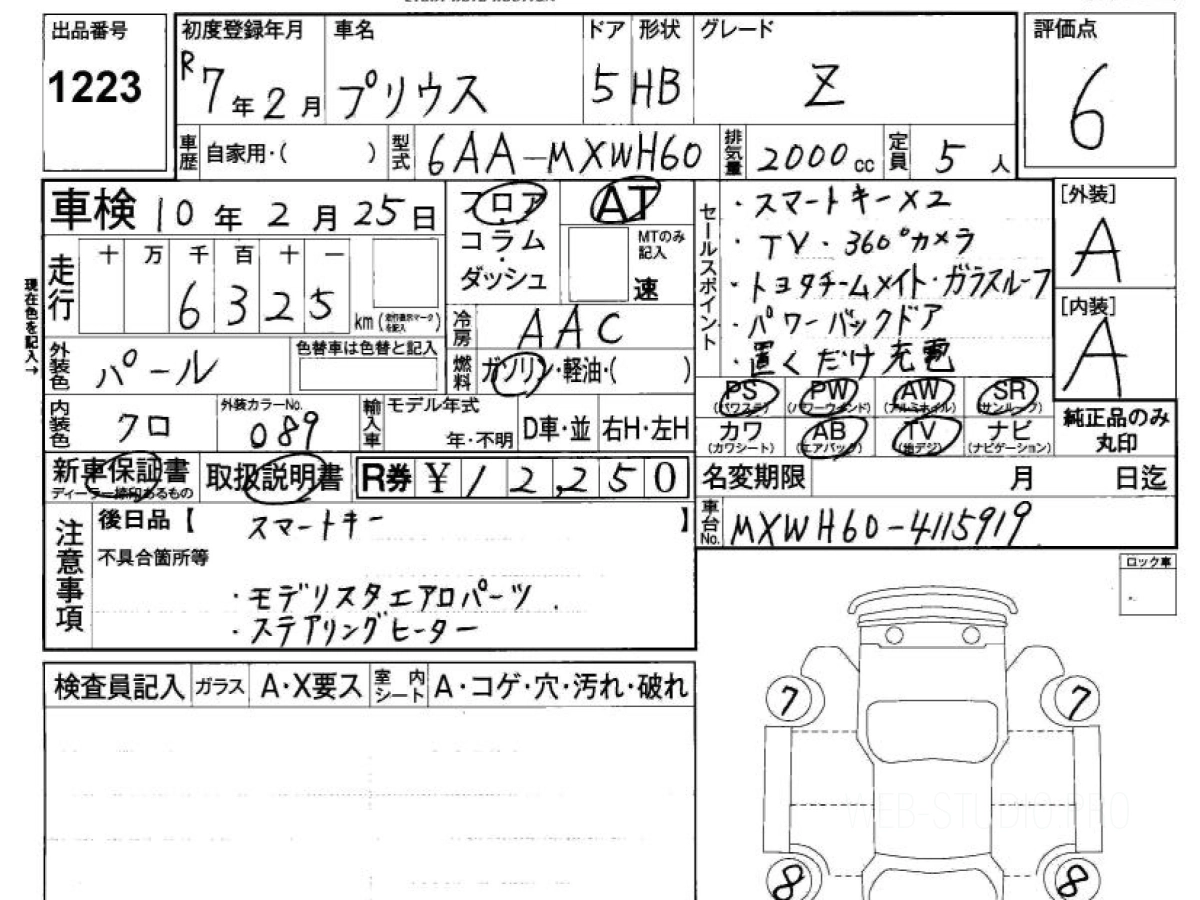 出品番号
1223
初度登録年月
R7年2月
車名
プリウス
ドア
5
形状
HB
グレード
Z
評価点
6
車歴
自家用・( )
型式
6AA-MXWH60
排気量
2000cc
定員
5人
車検 10年2月25日
フロア
コラム
・
ダッシュ
AT
MTのみ記入
速
セールスポイント
・スマートキー×2
・TV・360°カメラ
・トヨタチームメイト・ガラスルーフ
・パワーバックドア
・置くだけ充電
[外装]
A
[内装]
A
現在色を記入→
走行
十 万 千 百 十 一
6 3 2 5
km(走行表示マークを記入)
冷房
AAC
燃料
ガソリン・軽油・( )
外装色
パール
色替車は色替と記入
PS (パワステ)
PW (パワーウィンド)
AW (アルミホイル)
SR (サンルーフ)
カワ (カワシート)
AB (エアバック)
TV (地デジ)
ナビ (ナビゲーション)
純正品のみ
丸印
内装色
クロ
外装カラーNo.
089
輸入車
モデル年式
年・不明
D車・並
右H・左H
新車保証書
ディーラー捺印あるもの
取扱説明書
R券 ¥12,250
名変期限 月 日迄
車台No.
MXWH60-4115919
注意事項
後日品【 スマートキー 】
不具合箇所等
・モデリスタエアロパーツ
・ステアリングヒーター
ロック車
検査員記入
ガラス
A・X要ス
室内シート
A・コゲ・穴・汚れ・破れ
7
7
WEB-STUDIO.PRO
8
8